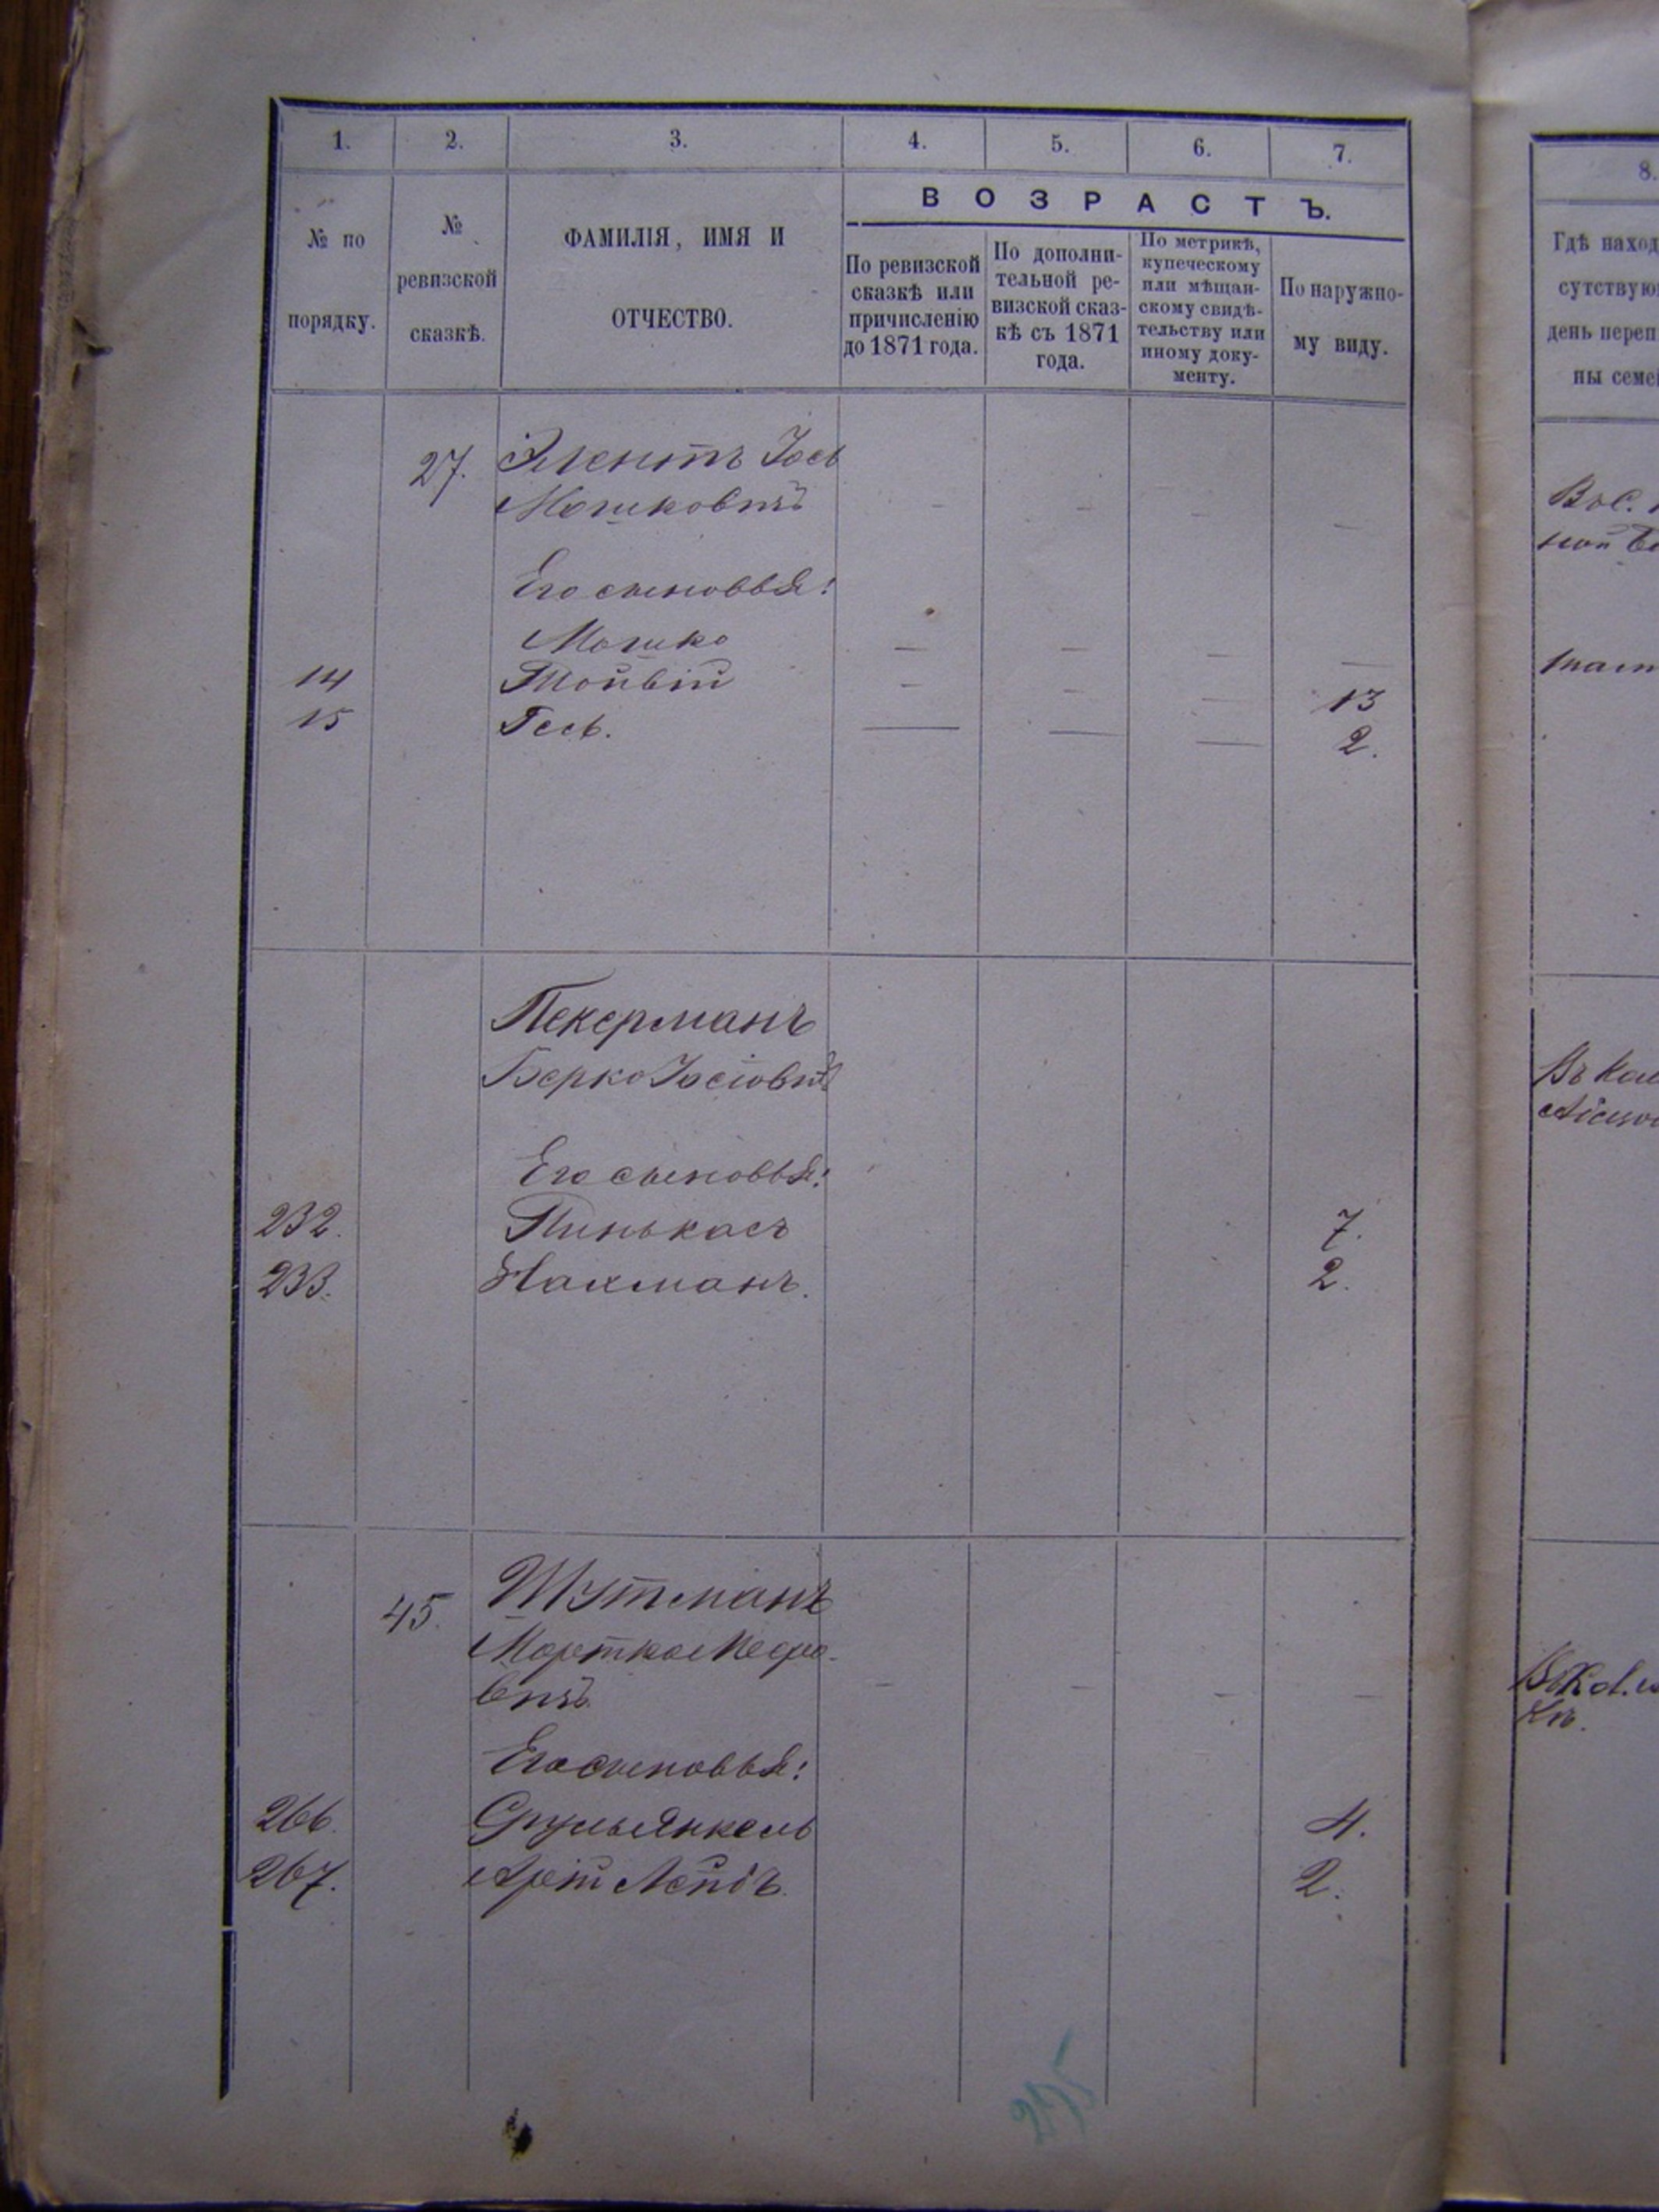 1. 2. 3. 4. 5. 6. 7.
ВОЗРАСТЪ.
№ по
порядку.
№
ревизской
сказкѣ.
ФАМИЛІЯ, ИМЯ И
ОТЧЕСТВО.
По ревизской
сказкѣ или
причисленію
до 1871 года.
По дополни-
тельной ре-
визской сказ-
кѣ съ 1871
года.
По метрикѣ,
купеческому
или мѣщан-
скому свидѣ-
тельству или
иному доку-
менту.
По наружно-
му виду.
27. Іось
Мошковичъ - - - -
Его сыновья:
Мошко — — — —
14 Тойвій - - — 13
15 Гесь. — — — 2.
Пекерманъ
Берко Іосіовичъ
Его сыновья:
232. Пинькасъ 7.
233. Нахманъ. 2.
45. Шутманъ
Мортко
вичъ - - - -
Его сыновья:
266. Сруль Янкель 4.
267. Арій Лейбъ. 2.
8.
Гдѣ наход
сутствую
день переп
ны семе